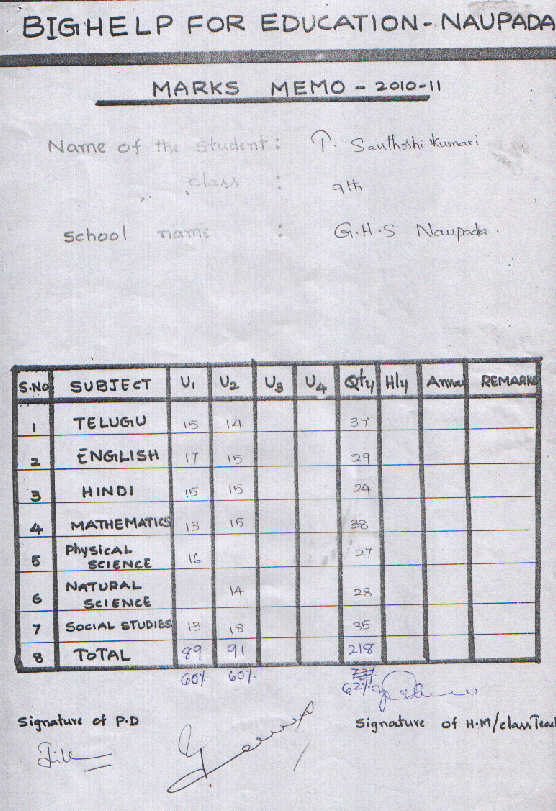 BIGHELP FOR EDUCATION - NAUPADA
MARKS MEMO - 2010-11
Name of the Student : T. Santhoshi Kumari
class : 9th
School name : G.H.S Naupada.
S.No SUBJECT U1 U2 U3 U4 Qty Hly Annu REMARK
1 TELUGU 15 14 37
2 ENGLISH 17 15 29
3 HINDI 15 15 24
4 MATHEMATICS 13 15 38
5 Physical SCIENCE 16 27
6 NATURAL SCIENCE 14 28
7 SOCIAL STUDIES 13 18 35
8 TOTAL 89 91 218
60% 60% 62%
Signature of P.D Signature of H.M/class Teac